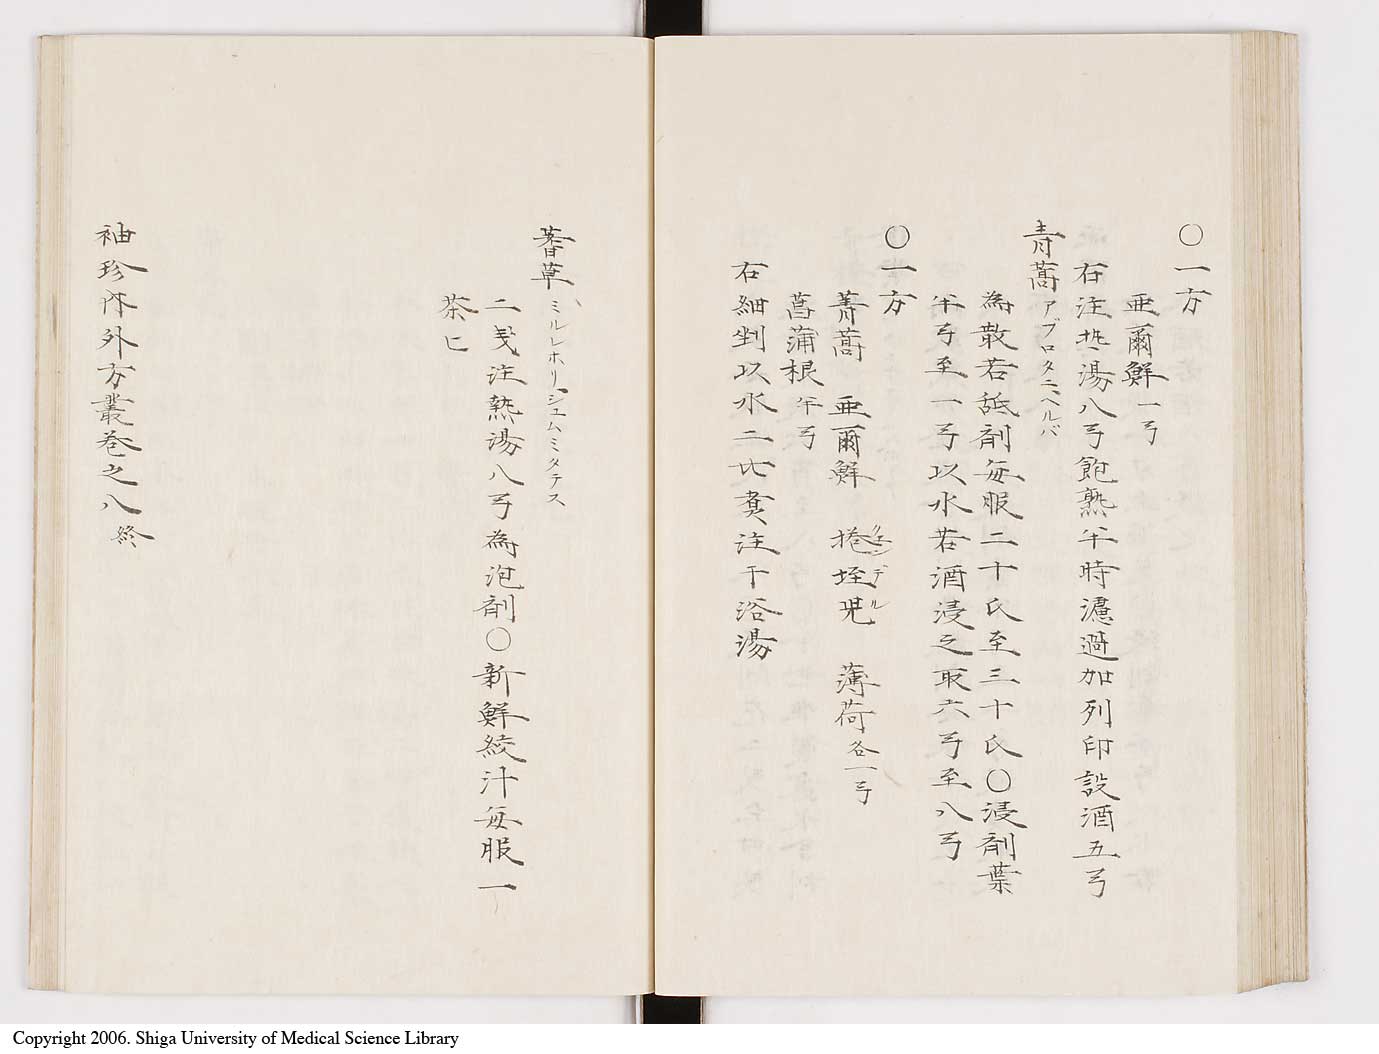 〇一方
亜爾鮮一弓
右注热湯八弓飽熟半時濾過加列印設酒五弓
青蒿アブロタニヘルバ
為散若舐剤毎服二十氏至三十氏〇浸剤葉
半弓至一弓以水若酒浸之取六弓至八弓
〇一方
菁蒿 亜爾鮮 捲垤児 薄荷各一弓
菖蒲根半弓
右細剉以水二比煑注于浴湯
蓍草ミルレホリジユムミタテス
二戔注熱湯八弓為泡剤〇新鮮絞汁毎服一
茶匕
袖珍体外方叢巻之八終
Copyright 2006. Shiga University of Medical Science Library